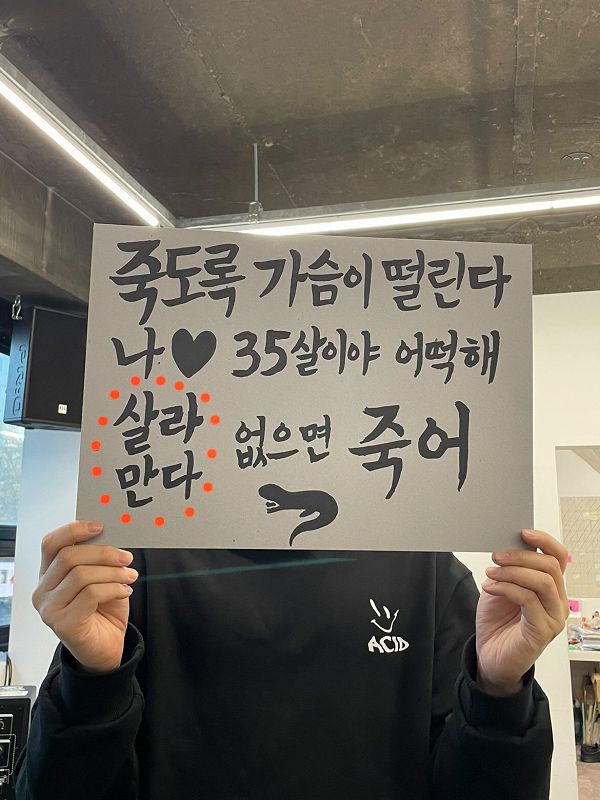 죽도록 가슴이 떨린다
나♥ 35살이야 어떡해
살라만다 없으면 죽어
ACID